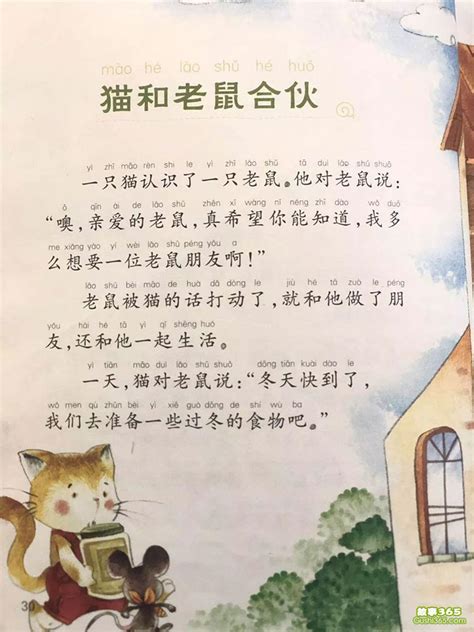 māo hé lǎo shǔ hé huǒ
猫和老鼠合伙
yì zhī māo rèn shi le yì zhī lǎo shǔ tā duì lǎo shǔ shuō
一只猫认识了一只老鼠。他对老鼠说：
ō qīn ài de lǎo shǔ zhēn xī wàng nǐ néng zhī dào wǒ duō
“噢，亲爱的老鼠，真希望你能知道，我多
me xiǎng yào yí wèi lǎo shǔ péng you a
么想要一位老鼠朋友啊！”
lǎo shǔ bèi māo de huà dǎ dòng le jiù hé tā zuò le péng
老鼠被猫的话打动了，就和他做了朋
you hái hé tā yì qǐ shēng huó
友，还和他一起生活。
yì tiān māo duì lǎo shǔ shuō dōng tiān kuài dào le
一天，猫对老鼠说：“冬天快到了，
wǒ men qù zhǔn bèi yì xiē guò dōng de shí wù ba
我们去准备一些过冬的食物吧。”
30
故事365
Gushi365.com